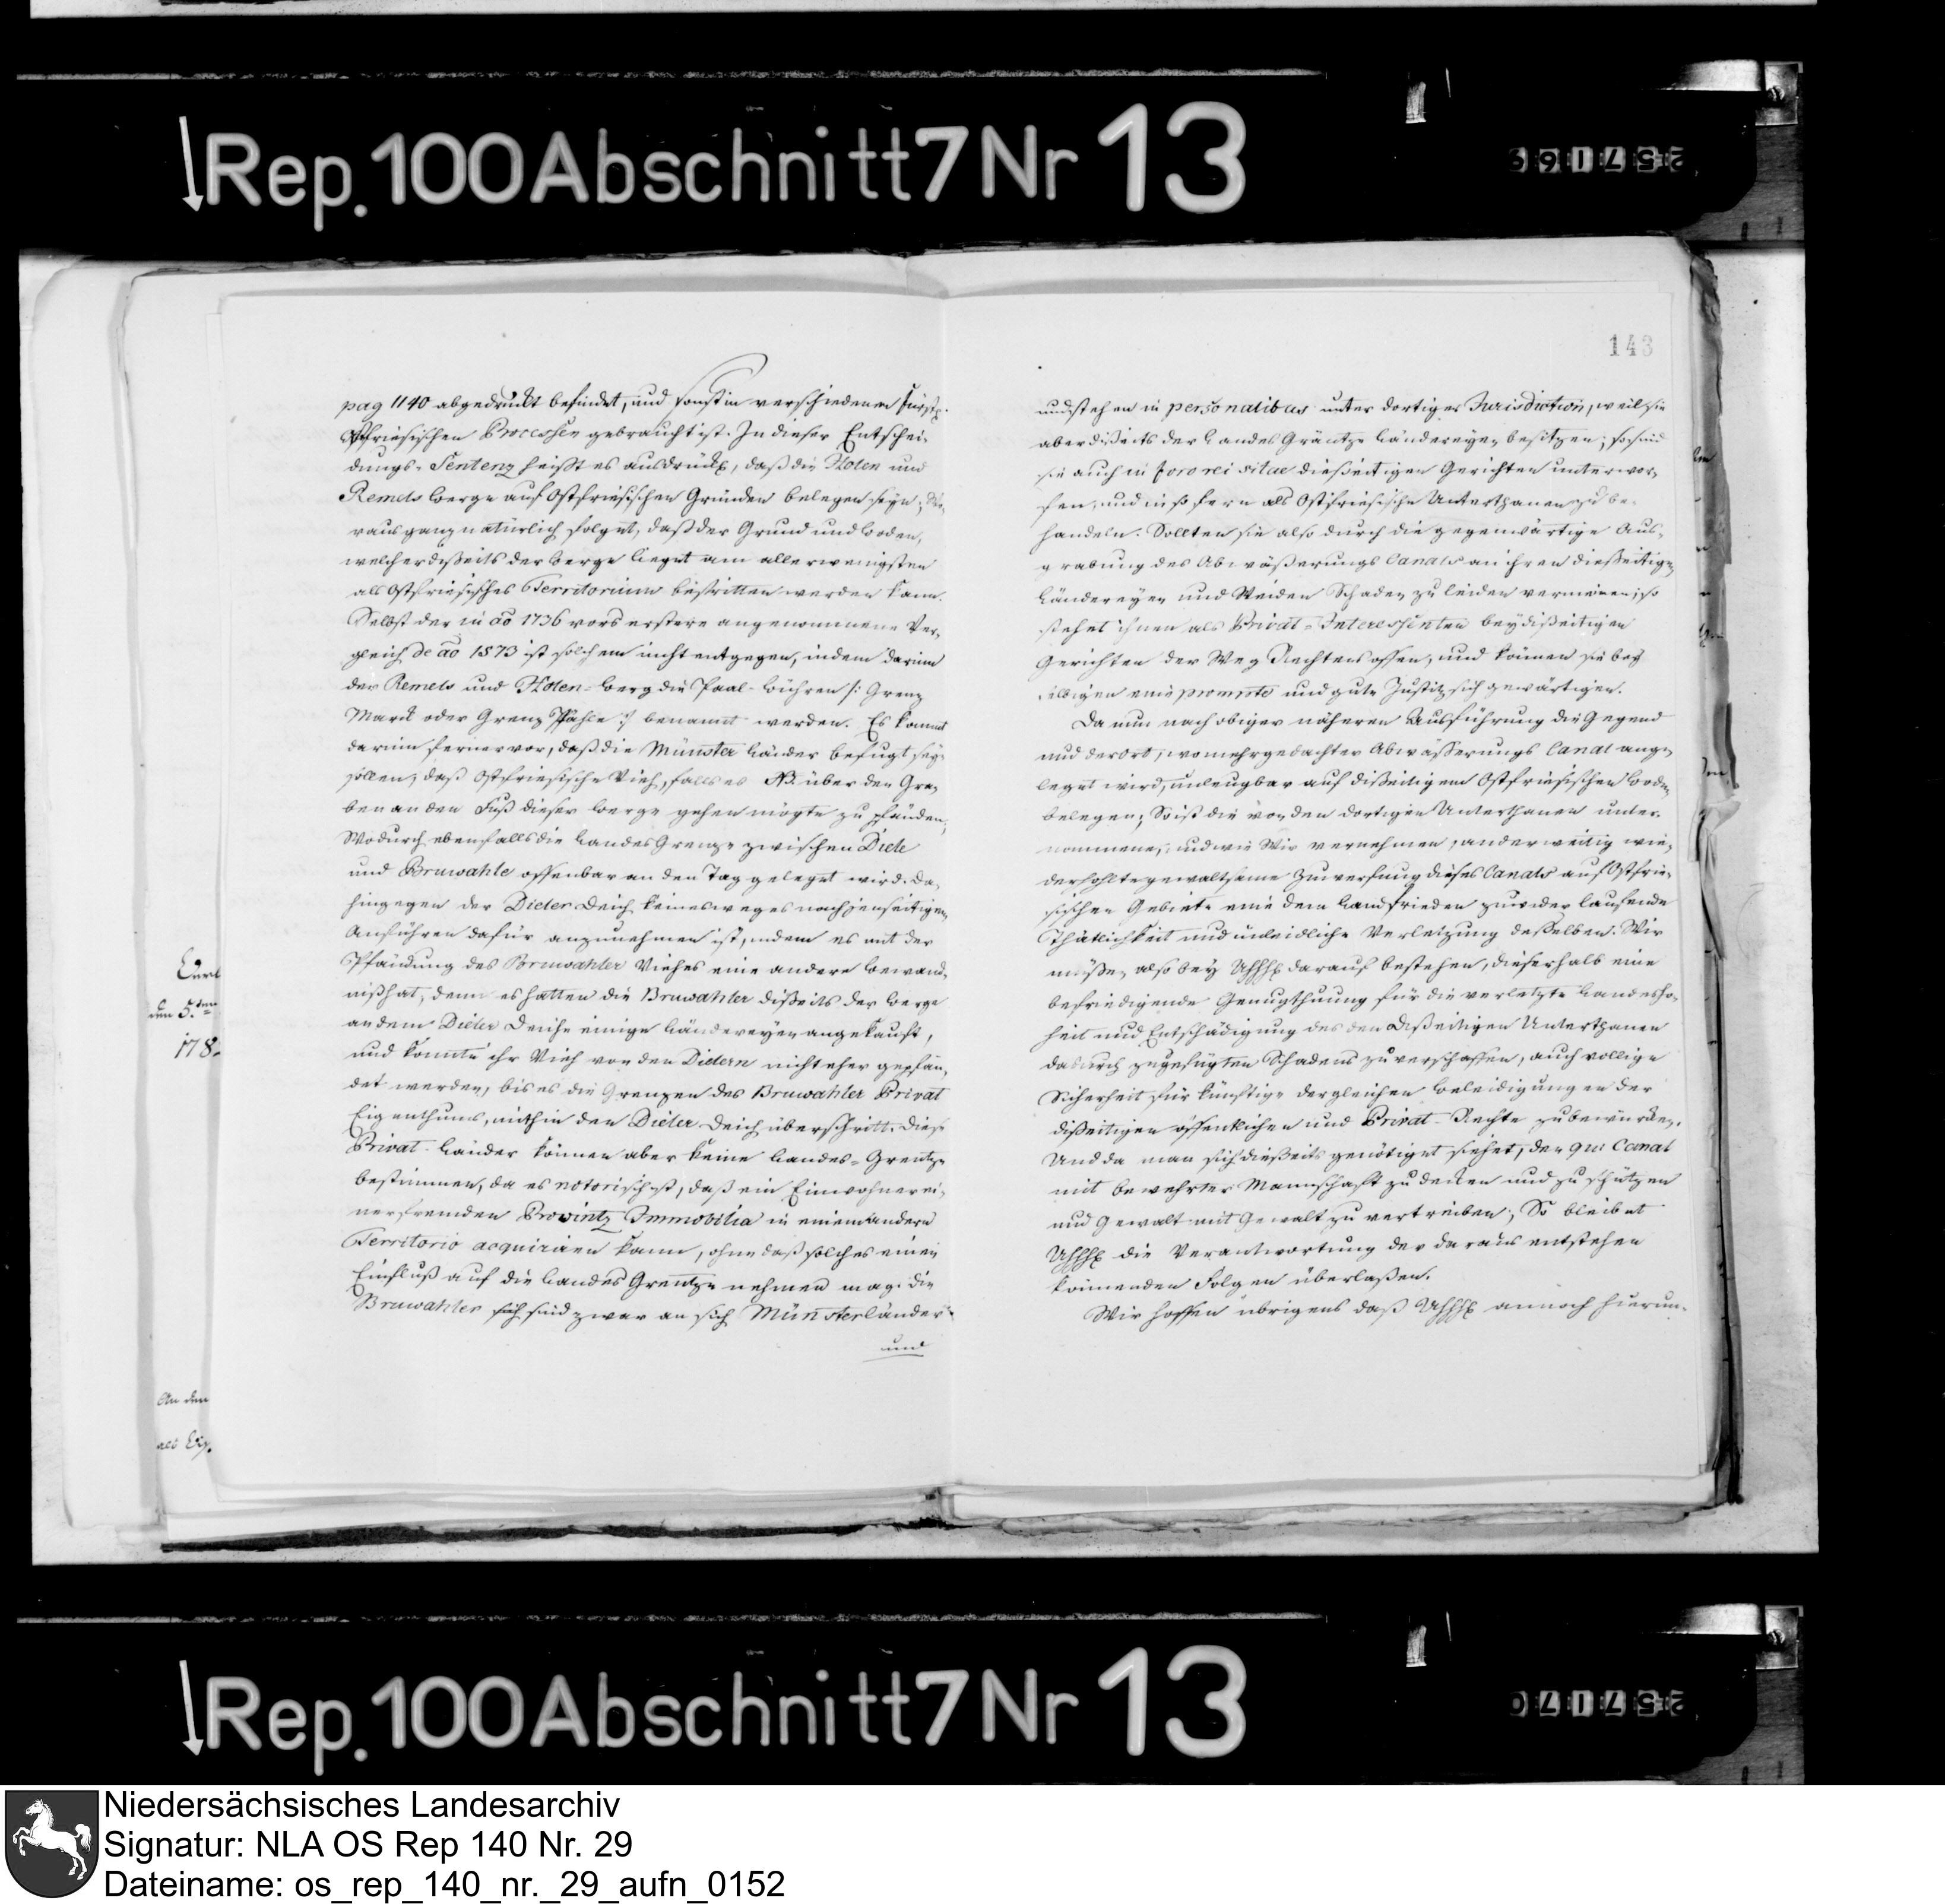 Rep. 100 Abschnitt 7 Nr 13
143
pag 1140 abgedruckt befindet, und sonst in verschiedenen Fürstl.
Ostfriesischen Processen gebraucht ist. In dieser Entschei-
dungs-Sentenz heißt es ausdrückl, daß die Holen und
Remels berge auf Ostfriesischen Gründen belegen seyn; Wo-
raus ganz natürlich folget, daß der Grund und boden,
welcher dißeits der berge lieget am allerwenigsten
als Ostfriesisches Territorium bestritten werden kann.
Selbst der in aō 1736 vors erstere angenommene Ver-
gleich de aō 1573 ist solchem nicht entgegen, indem darinn
der Remels und Holen-berg die Paal-bühren /: Grenz
Marck oder Grenz Pfähle :/ benannt werden. Es kommt
darinn ferner vor, daß die Münsterländer befugt seyn
sollen, daß Ostfriesische Vieh, falls es NB. über den Gra-
ben an den Fuß dieser berge gehen mögte zu pfänden;
Wodurch ebenfalls die Landes Grenze zwischen Diele
und Bruwahle offenbar an den Tag geleget wird. Da-
hingegen der Dieler Deich keinesweges nach jenseitigem
Anführen dafür anzunehmen ist, indem es mit der
Pfändung des Bruwahler Viehes eine andere bewand-
niß hat, denn es hatten die Bruwahler dißeits der berge
an dem Dieler Deiche einige Ländereyen angekauft,
und konnte ihr Vieh von den Dielern nicht eher gepfän-
det werden, bis es die Grenzen des Bruwahler Privat
Eigenthums, mithin den Dieler Deich überschritt. Diese
Privat-Länder können aber keine Landes-Grentze
bestimmen, da es notorisch ist, daß ein Einwohner ei-
ner fremden Provintz Immobilia in einem andern
Territorio acquiriren kann, ohne daß solches einen
Einfluß auf die Landes Grentze nehmen mag. Die
Bruwahler sind zwar an sich Münsterländer
und
und stehen in personalibus unter dortiger Jurisdiction, weil sie
aber dißeits der Landes Gräntze Ländereyen besitzen; so sind
sie auch in foro rei sitae dießeitigen Gerichten unterwor-
fen, und in so fern als Ostfriesische Unterthanen zu be-
handeln. Sollten sie also durch die gegenwärtige Aus-
grabung des Abwäßerungs Canals an ihren dießeitigen
Ländereyen und Weiden Schaden zu leiden vermeinen; so
stehet ihnen als Privat-Interessenten bey dißeitigen
Gerichten der Weg Rechtens offen, und können sie bey
selbigen eine prompte und gute Justitz sich gewärtigen.
Da nun nach obiger näheren Ausführung die Gegend
und der Ort, wo mehrgedachter Abwäßerungs Canal ange-
leget wird, unleugbar auf dißeitigem Ostfriesischen boden
belegen; So ist die von den dortigen Unterthanen unter-
nommene, und wie Wir vernehmen, anderweitig wie-
derholte gewaltsame Zuwerfung dieses Canals auf Ostfrie-
sischen Gebiete eine dem Landfrieden zuwider laufende
Thätlichkeit und unleidliche Verletzung desselben. Wir
müßen also bey darauf bestehen, dieserhalb eine
befriedigende Genugthuung für die verletzte Landesho-
heit und Entschädigung des den dißeitigen Unterthanen
dadurch zugefügten Schadens zu verschaffen, auch vollige
Sicherheit für künftige dergleichen beleidigungen der
dißeitigen öffentlichen und Privat-Rechte zu bewürken.
Und da man sich dießeits genötiget siehet, den qu: Canal
mit bewehrter Mannschaft zu decken und zu schützen
und Gewalt mit Gewalt zu vertreiben; So bleibet
die Verantwortung der daraus entstehen
könnenden Folgen überlaßen.
Wir hoffen übrigens daß annoch hierun-
den 5.ten
178
An den
Rep. 100 Abschnitt 7 Nr 13
Niedersächsisches Landesarchiv
Signatur: NLA OS Rep 140 Nr. 29
Dateiname: os_rep_140_nr._29_aufn_0152